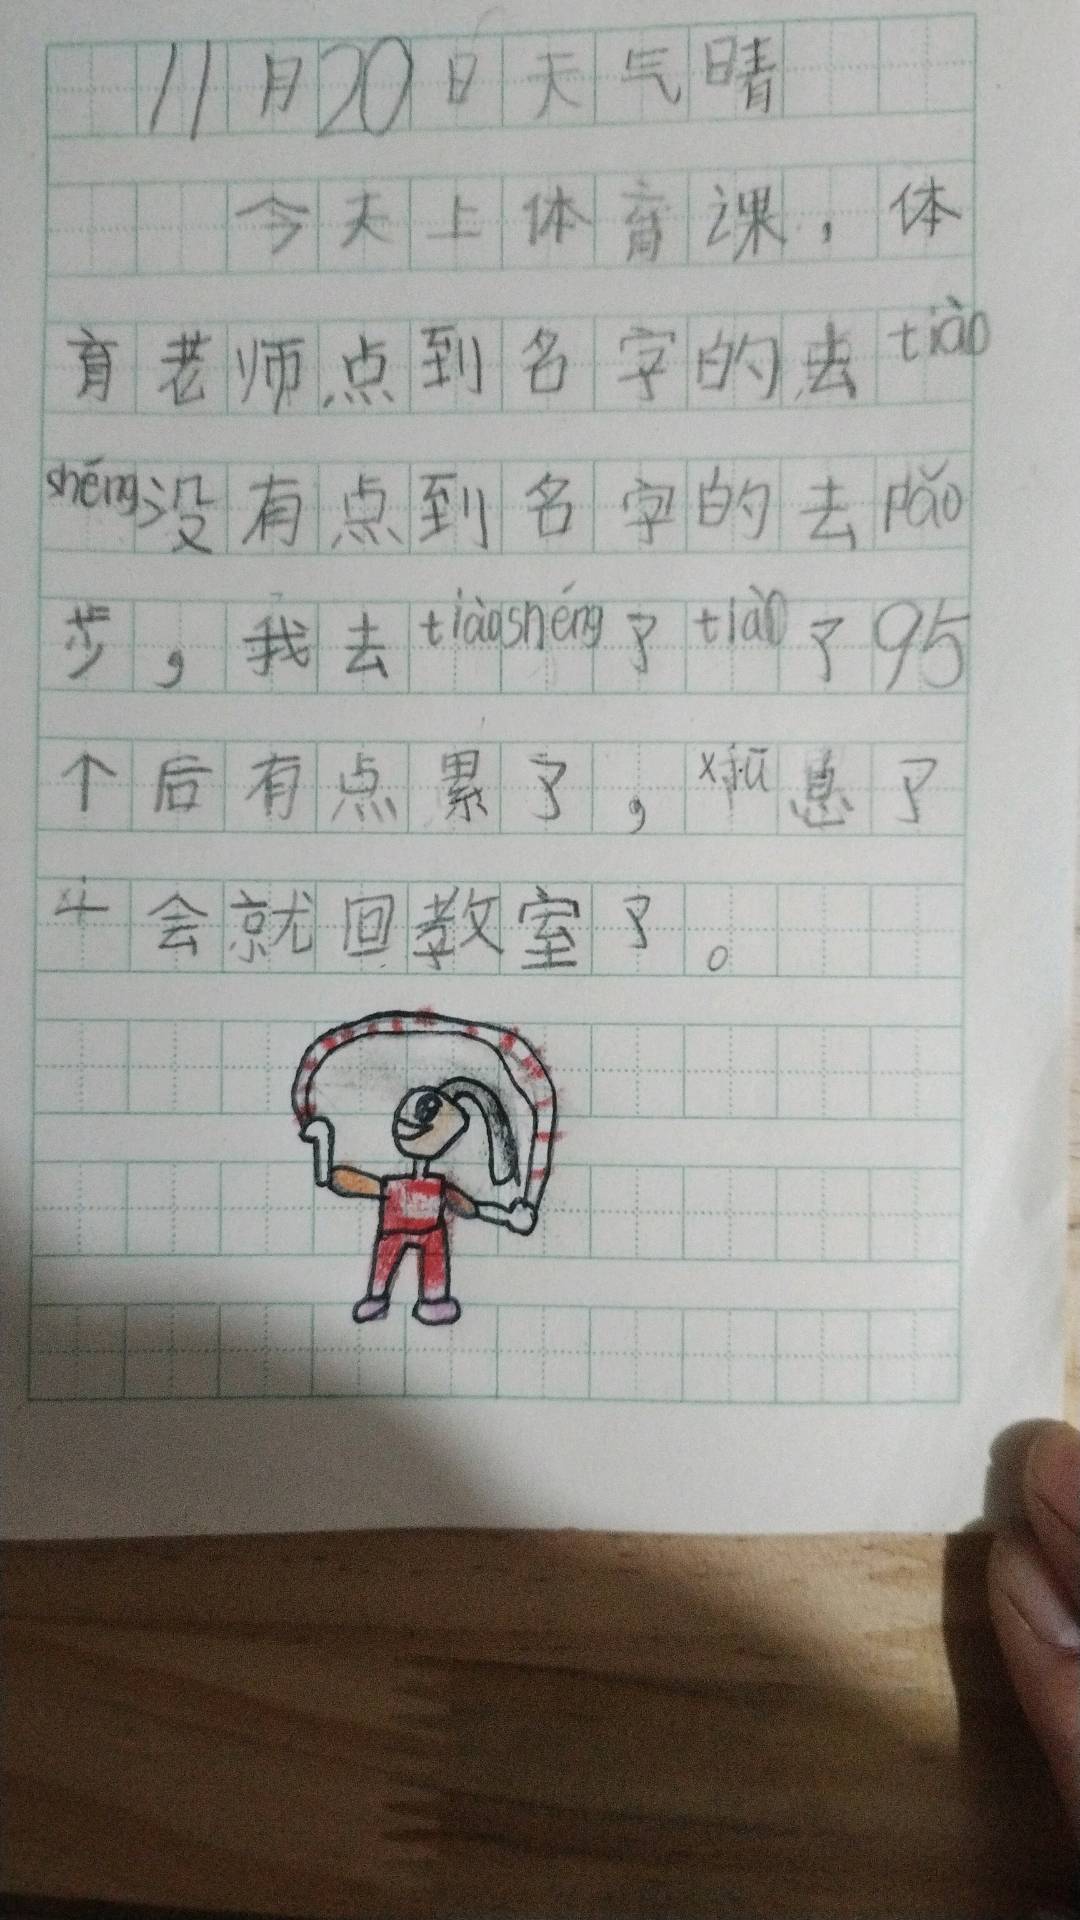 11月20日天气晴
今天上体育课，体
育老师点到名字的去tiào
shéng没有点到名字的去pǎo
步，我去tiàoshéng了tiào了95
个后有点累了，xiū息了
半会就回教室了。